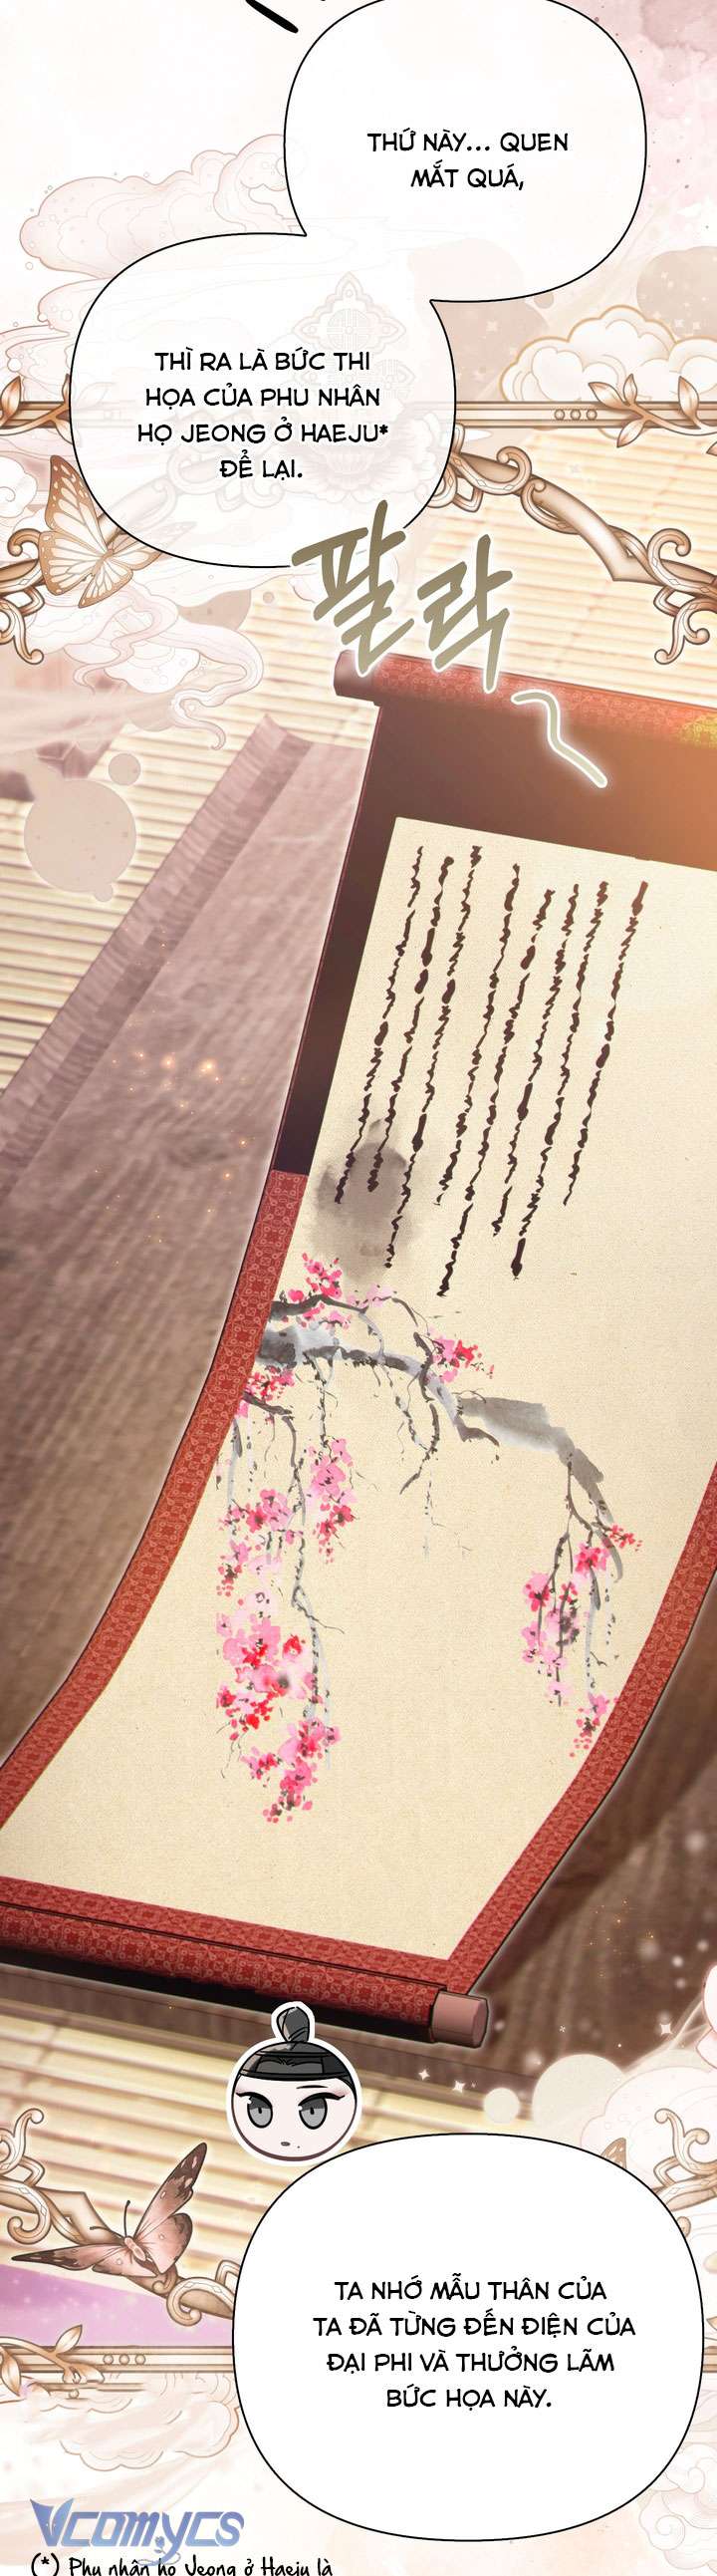 THỨ NÀY... QUEN
MẮT QUÁ,
THÌ RA LÀ BỨC THI
HỌA CỦA PHU NHÂN
HỌ JEONG Ở HAEJU*
ĐỂ LẠI.
팔락
TA NHỚ MẪU THÂN CỦA
TA ĐÃ TỪNG ĐẾN ĐIỆN CỦA
ĐẠI PHI VÀ THƯỞNG LÃM
BỨC HỌA NÀY.
Vcomycs
(*) Phu nhân họ Jeong ở Haeju là